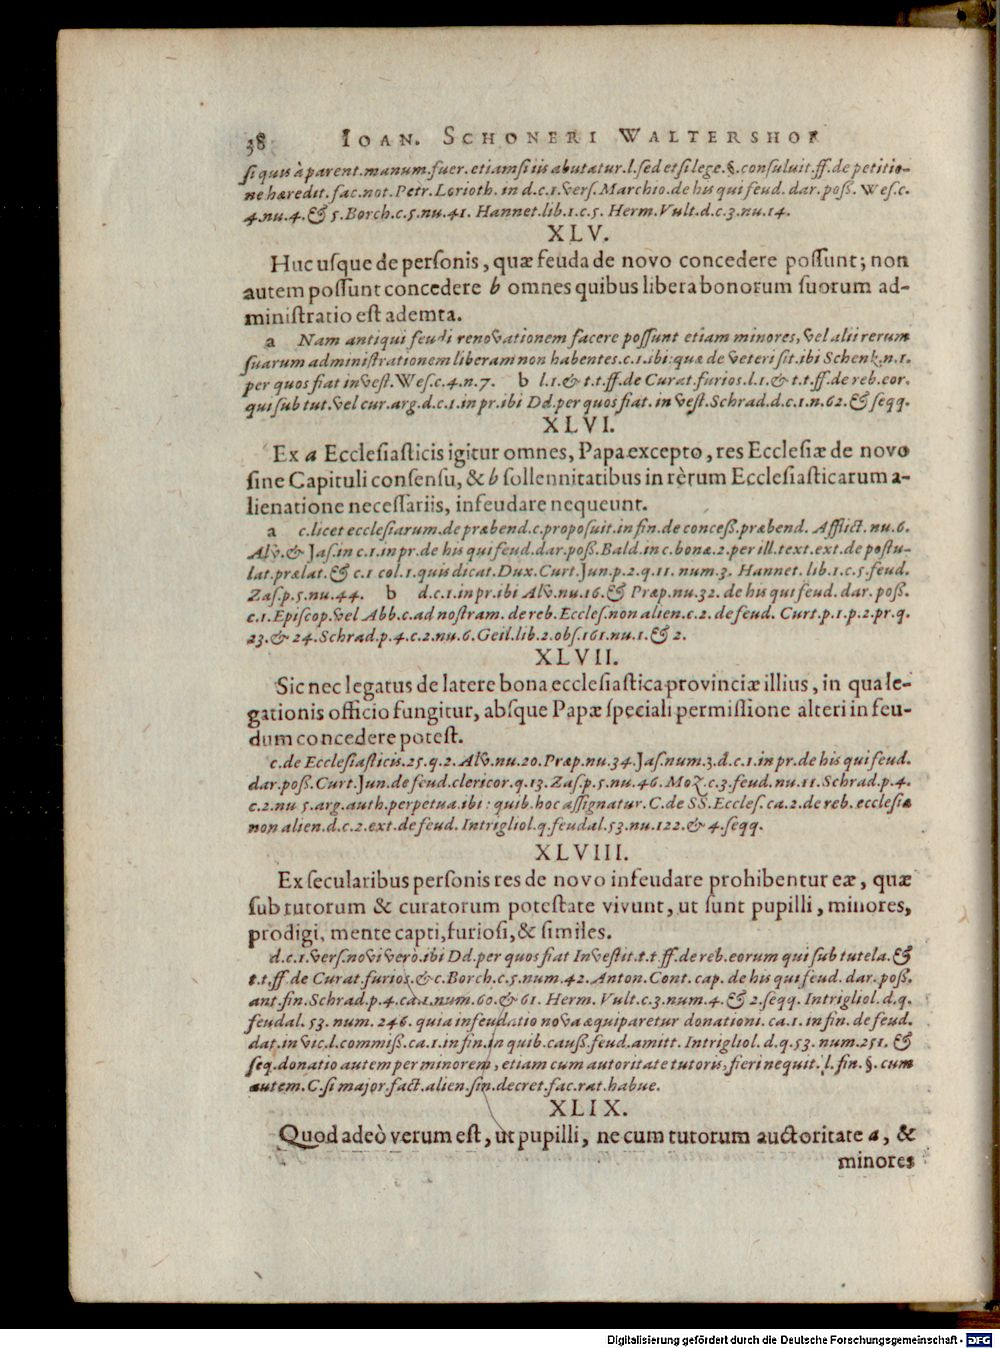 38 IOAN. SCHONERI WALTERSHOF
si quis à parent. manum. fuer. etiamsi iis abutatur. l. sed et si lege. §. consuluit. ff. de petitio-
ne hæredit. fac. not. Petr. Lorioth. in d. c. 1. vers. Marchio. de his qui feud. dar. poß. Wes. c.
4. nu. 4. & 5. Borch. c. 5. nu. 41. Hannet. lib. 1. c. 5. Herm. Vult. d. c. 3. nu. 14.
XLV.
Huc usque de personis, quæ feuda de novo concedere possunt; non
autem possunt concedere b omnes quibus libera bonorum suorum ad-
ministratio est ademta.
a Nam antiqui feudi renovationem facere possunt etiam minores, vel alii rerum
suarum administrationem liberam non habentes. c. 1. ibi: quæ de veteri sit. ibi Schenk. n. 1.
per quos fiat invest. Wes. c. 4. n. 7. b l. 1. & t. t. ff. de Curat. furios. l. 1. & t. t. ff. de reb. eor.
qui sub tut. vel cur. arg. d. c. 1. in pr. ibi Dd. per quos fiat. in vest. Schrad. d. c. 1. n. 62. & seqq.
XLVI.
Ex a Ecclesiasticis igitur omnes, Papa excepto, res Ecclesiæ de novo
sine Capituli consensu, & b sollennitatibus in rèrum Ecclesiasticarum a-
lienatione necessariis, infeudare nequeunt.
a c. licet ecclesiarum. de præbend. c. proposuit. in fin. de conceß. præbend. Afflict. nu. 6.
Alv. & Jas. in c. 1. in pr. de his qui feud. dar. poß. Bald. in c. bonæ. 2. per ill. text. ext. de postu-
lat. prælat. & c. 1 col. 1. quis dicat. Dux. Curt. Jun. p. 2. q. 11. num. 3. Hannet. lib. 1. c. 5. feud.
Zas. p. 5. nu. 44. b d. c. 1. in pr. ibi Alv. nu. 16. & Præp. nu. 32. de his qui feud. dar. poß.
c. 1. Episcop. vel Abb. c. ad nostram. de reb. Eccles. non alien. c. 2. de feud. Curt. p. 1. p. 2. pr. q.
23. & 24. Schrad. p. 4. c. 2. nu. 6. Geil. lib. 2. obs. 161. nu. 1. & 2.
XLVII.
Sic nec legatus de latere bona ecclesiastica provinciæ illius, in qua le-
gationis officio fungitur, absque Papæ speciali permissione alteri in feu-
dum concedere potest.
c. de Ecclesiasticis. 25. q. 2. Alv. nu. 20. Præp. nu. 34. Jas. num. 3. d. c. 1. in pr. de his qui feud.
dar. poß. Curt. Jun. de feud. clericor. q. 13. Zas. p. 5. nu. 46. Moz. c. 3. feud. nu. 11. Schrad. p. 4.
c. 2. nu 5. arg. auth. perpetua. ibi: quib. hoc assignatur. C. de SS. Eccles. ca. 2. de reb. ecclesiæ
non alien. d. c. 2. ext. de feud. Intrigliol. q. feudal. 53. nu. 122. & 4. seqq.
XLVIII.
Ex secularibus personis res de novo infeudare prohibentur eæ, quæ
sub tutorum & curatorum potestate vivunt, ut sunt pupilli, minores,
prodigi, mente capti, furiosi, & similes.
d. c. 1. vers. novi verò. ibi Dd. per quos fiat Investit. t. t. ff. de reb. eorum qui sub tutela. &
t. t. ff. de Curat. furios. & c. Borch. c. 5. num. 42. Anton. Cont. cap. de his qui feud. dar. poß.
ant. fin. Schrad. p. 4. ca. 1. num. 60. & 61. Herm. Vult. c. 3. num. 4. & 2. seqq. Intrigliol. d. q.
feudal. 53. num. 246. quia infeudatio nova æquiparetur donationi. ca. 1. in fin. de feud.
dat. in vic. l. commiß. ca. 1. in fin. in quib. cauß. feud. amitt. Intrigliol. d. q. 53. num. 251. &
seq. donatio autem per minorem, etiam cum autoritate tutoris, fieri nequit. l. fin. §. cum
autem. C. si major. fact. alien. sin. decret. fac. rat. habue.
XLIX.
Quod adeò verum est, ut pupilli, ne cum tutorum auctoritate a, &
minores
Digitalisierung gefördert durch die Deutsche Forschungsgemeinschaft - DFG